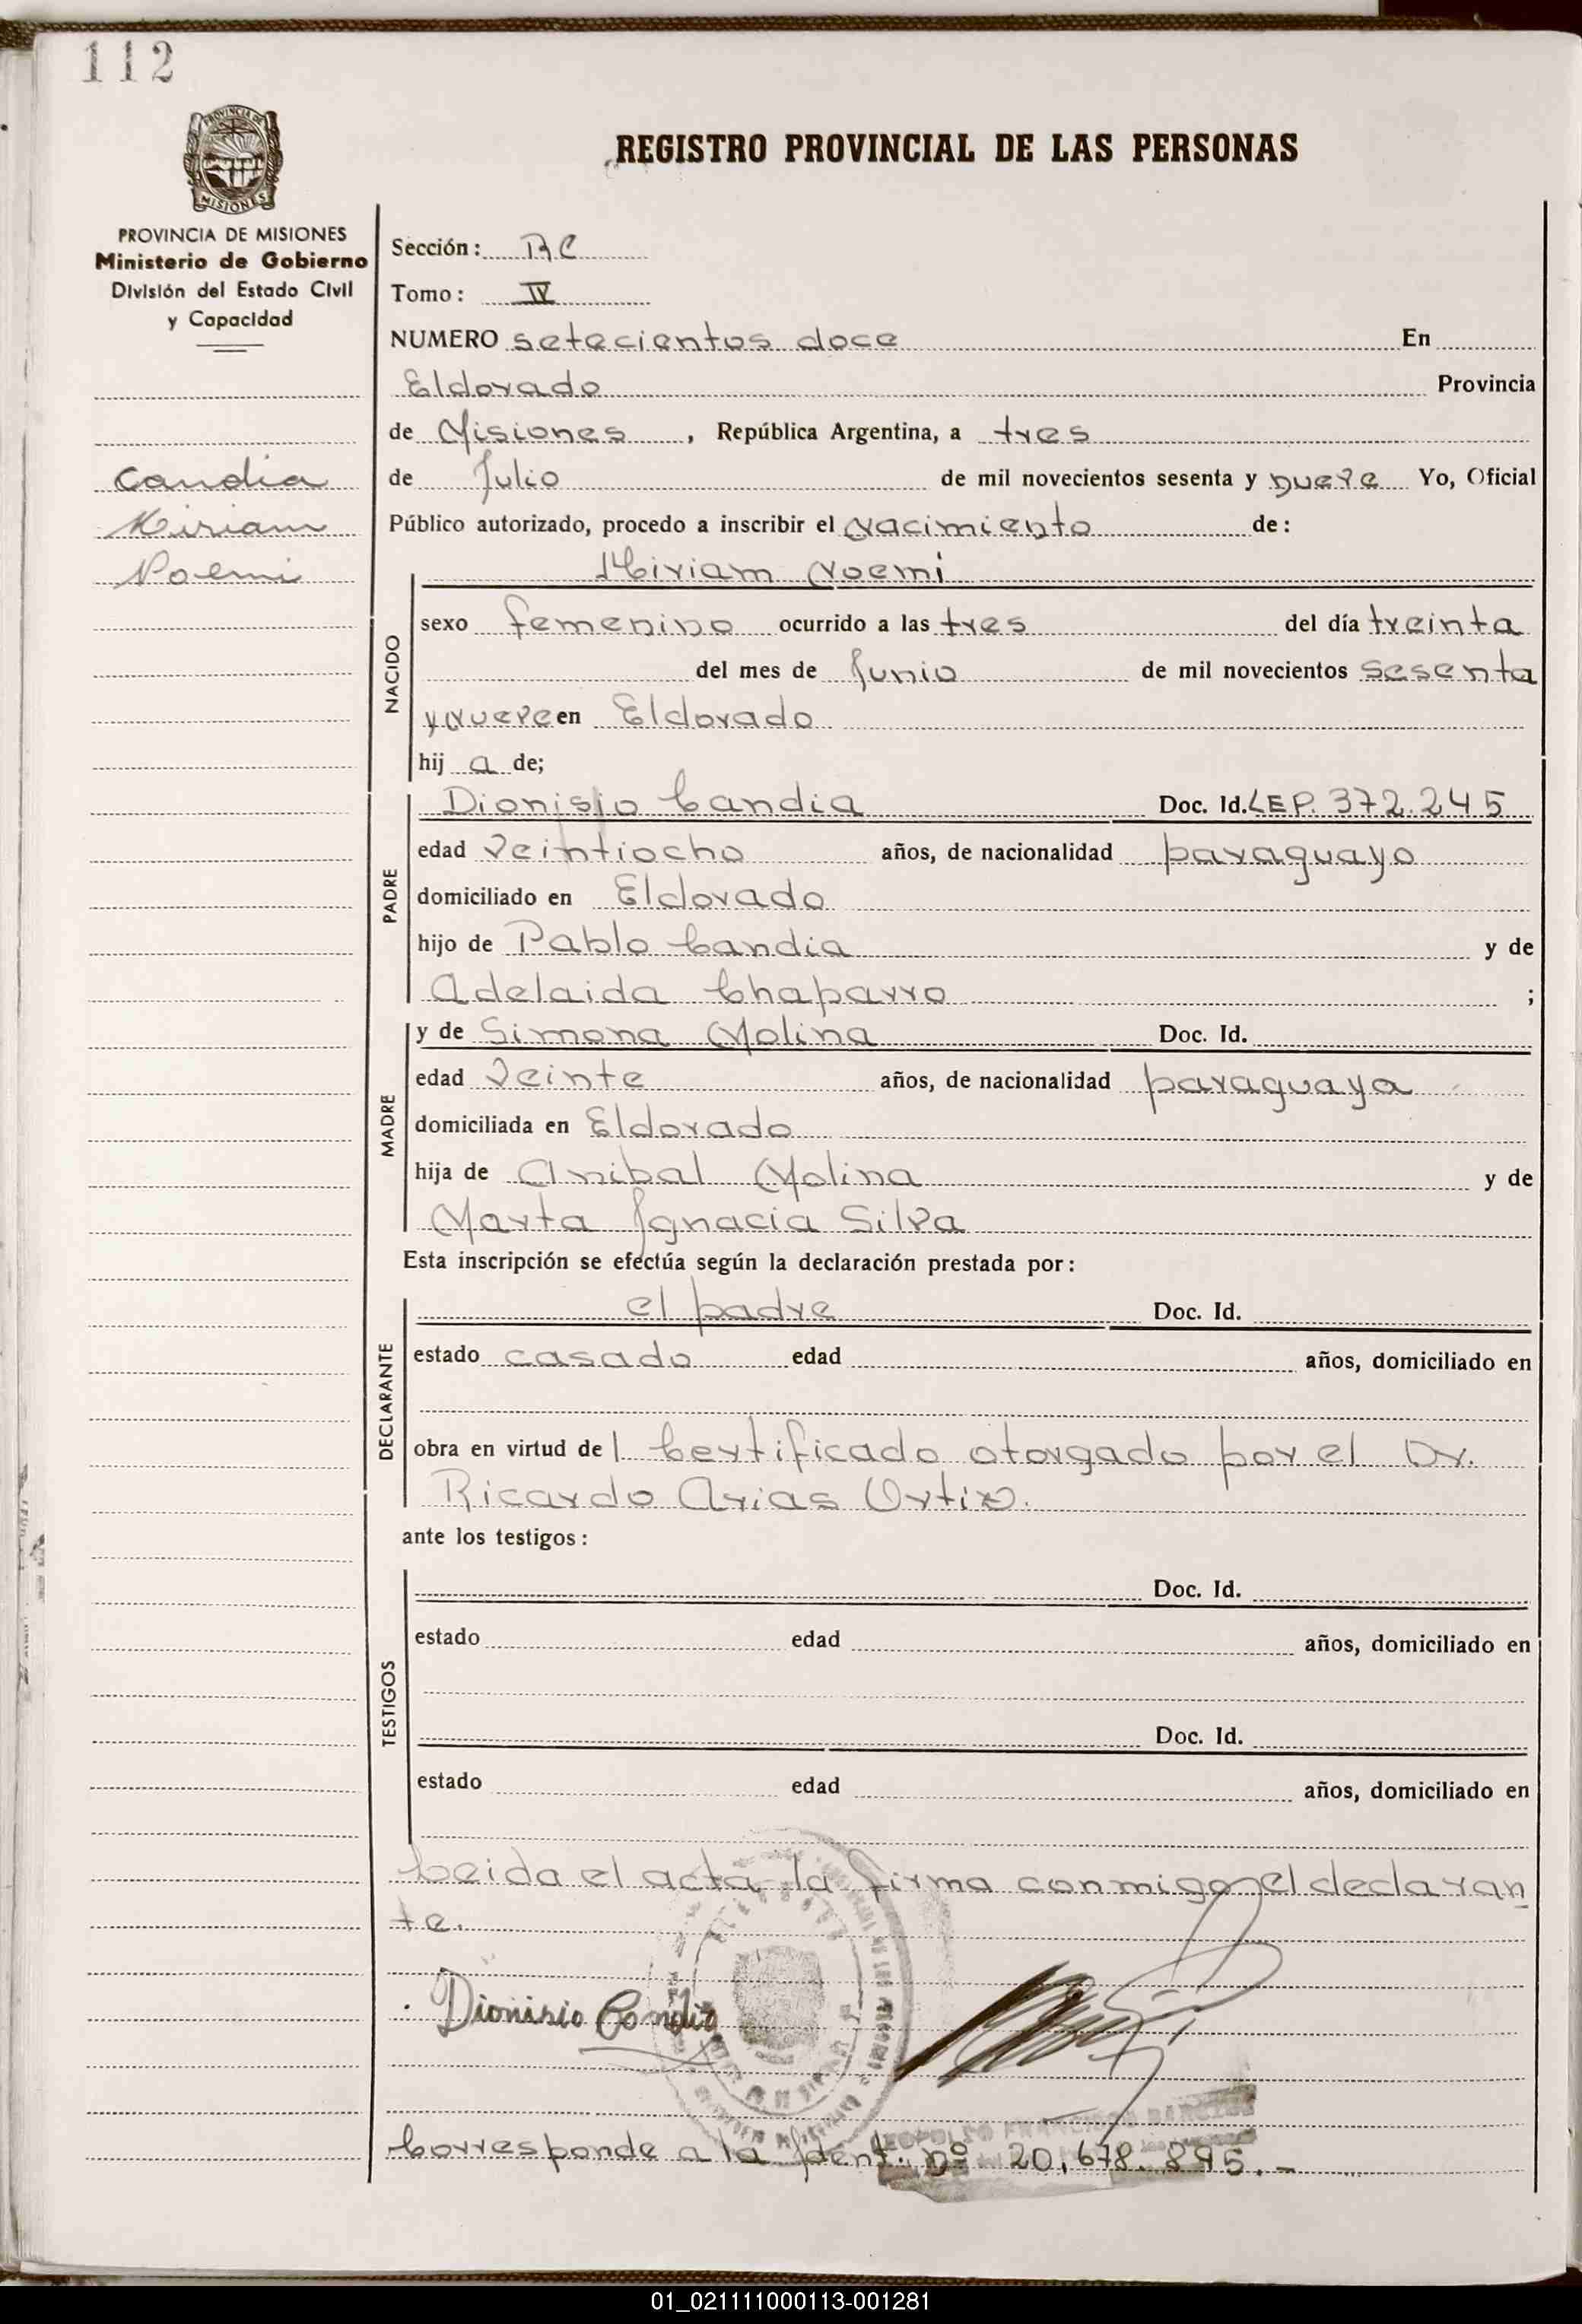 112
REGISTRO PROVINCIAL DE LAS PERSONAS
PROVINCIA DE MISIONES
Ministerio de Gobierno
División del Estado Civil
y Capacidad
Candia
Miriam
Noemi
Sección: RC
Tomo: IV
NUMERO setecientos doce En
Eldorado Provincia
de Misiones, República Argentina, a tres
de Julio de mil novecientos sesenta y nueve Yo, Oficial
Público autorizado, procedo a inscribir el Nacimiento de:
Miriam Noemi
NACIDO
sexo femenino ocurrido a las tres del día treinta
del mes de Junio de mil novecientos sesenta
y nueve en Eldorado
hij a de;
PADRE
Dionisio Candia Doc. Id. LEP. 372.245
edad Veintiocho años, de nacionalidad paraguayo
domiciliado en Eldorado
hijo de Pablo Candia y de
Adelaida Chaparro ;
MADRE
y de Simona Molina Doc. Id.
edad Veinte años, de nacionalidad paraguaya
domiciliada en Eldorado
hija de Anibal Molina y de
Marta Ignacia Silva
Esta inscripción se efectúa según la declaración prestada por:
DECLARANTE
el padre Doc. Id.
estado casado edad años, domiciliado en
obra en virtud del Certificado otorgado por el Dr.
Ricardo Arias Ortiz.
ante los testigos:
TESTIGOS
Doc. Id.
estado edad años, domiciliado en
Doc. Id.
estado edad años, domiciliado en
Leida el acta la firma conmigo el declaran
te.
Dionisio Candia
Corresponde a la Ident. nº 20.678.895.-
01_021111000113-001281